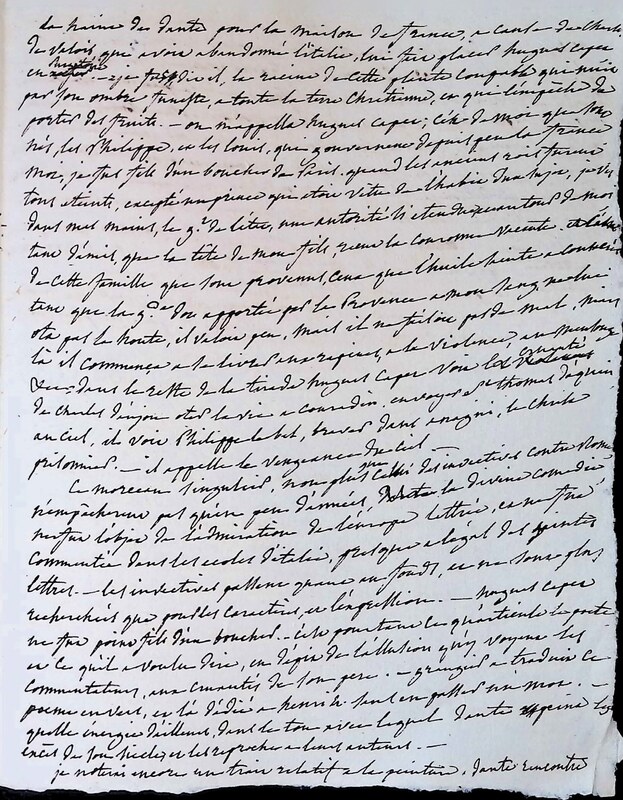 la haine de dante pour la maison de france, a cause de Charle
de valois, que avoit abandonné l'italie, lui fait placer hugues capet
en je fus, dit il, la racine de cette plante coupable qui nuit
par son ombre funeste a toute la terre Chrétienne, et qui l'empêche de
porter des fruits. — on m'appella hugues capet ; c'est de moi que sont
nés, les Philippe, et les louis, qui gouvernent depuis peu la france
moi, je fus fils d'un boucher de Paris. quand les anciens rois furent
tous eteints, excepté un prince qui etoit vetu de l'habit d'un moine, je vis
dans mes mains, le g.t de l'etat, une autorité si etendue autour de moi
tant d'amis, que la tete de mon fils, recut la couronne vacante.
de cette famille que sont provenus, ceux que l'huile sainte a
tant que la g.de dot apportée par la Provence a mon sang ne lui
ota pas la honte, il valoit peu, mais il ne faisoit pas de mal, mais
là il commença a se livrer aux rapines, a la violence, au mensonge
dans le reste de la tirade hugues capet voit les cruautés
de charles d'anjou oter la vie a conradin, envoyer s.t thomas d'aquin
au ciel, il voit Philippe le bel, braver dans anagni, le Christ
prisonnier. — il appelle la vengeance du ciel —
Ce morceau singulier, non plus que celui des invectives contre Rome
n'empêcherent pas qu'en peu d'années, la divine comedie
ne fut l'objet de l'admiration de l'europe lettrée, et ne fut
commentée dans les ecoles d'italie, presque a l'égal des saintes
lettres. — les invectives passent quant au fonds, et ne sont plus
recherchées que pour les caracteres, et l'expression. — hugues capet
ne fut point fils d'un boucher. — c'est pourtant ce qu'articule le poete
et ce qu'il a voulu dire, en dépit de l'allusion qu'y voyent les
commentateurs, aux cruautés de son pere. — grangier a traduit ce
poeme en vers, et l'a dédié a henri 4. sans en passer un mot. —
quelle énergie d'ailleurs, dans le ton avec lequel dante peint les
excès de son siecle, et les reproche a leurs auteurs. —
je noterai encore un trait relatif a la peinture, dante rencontre